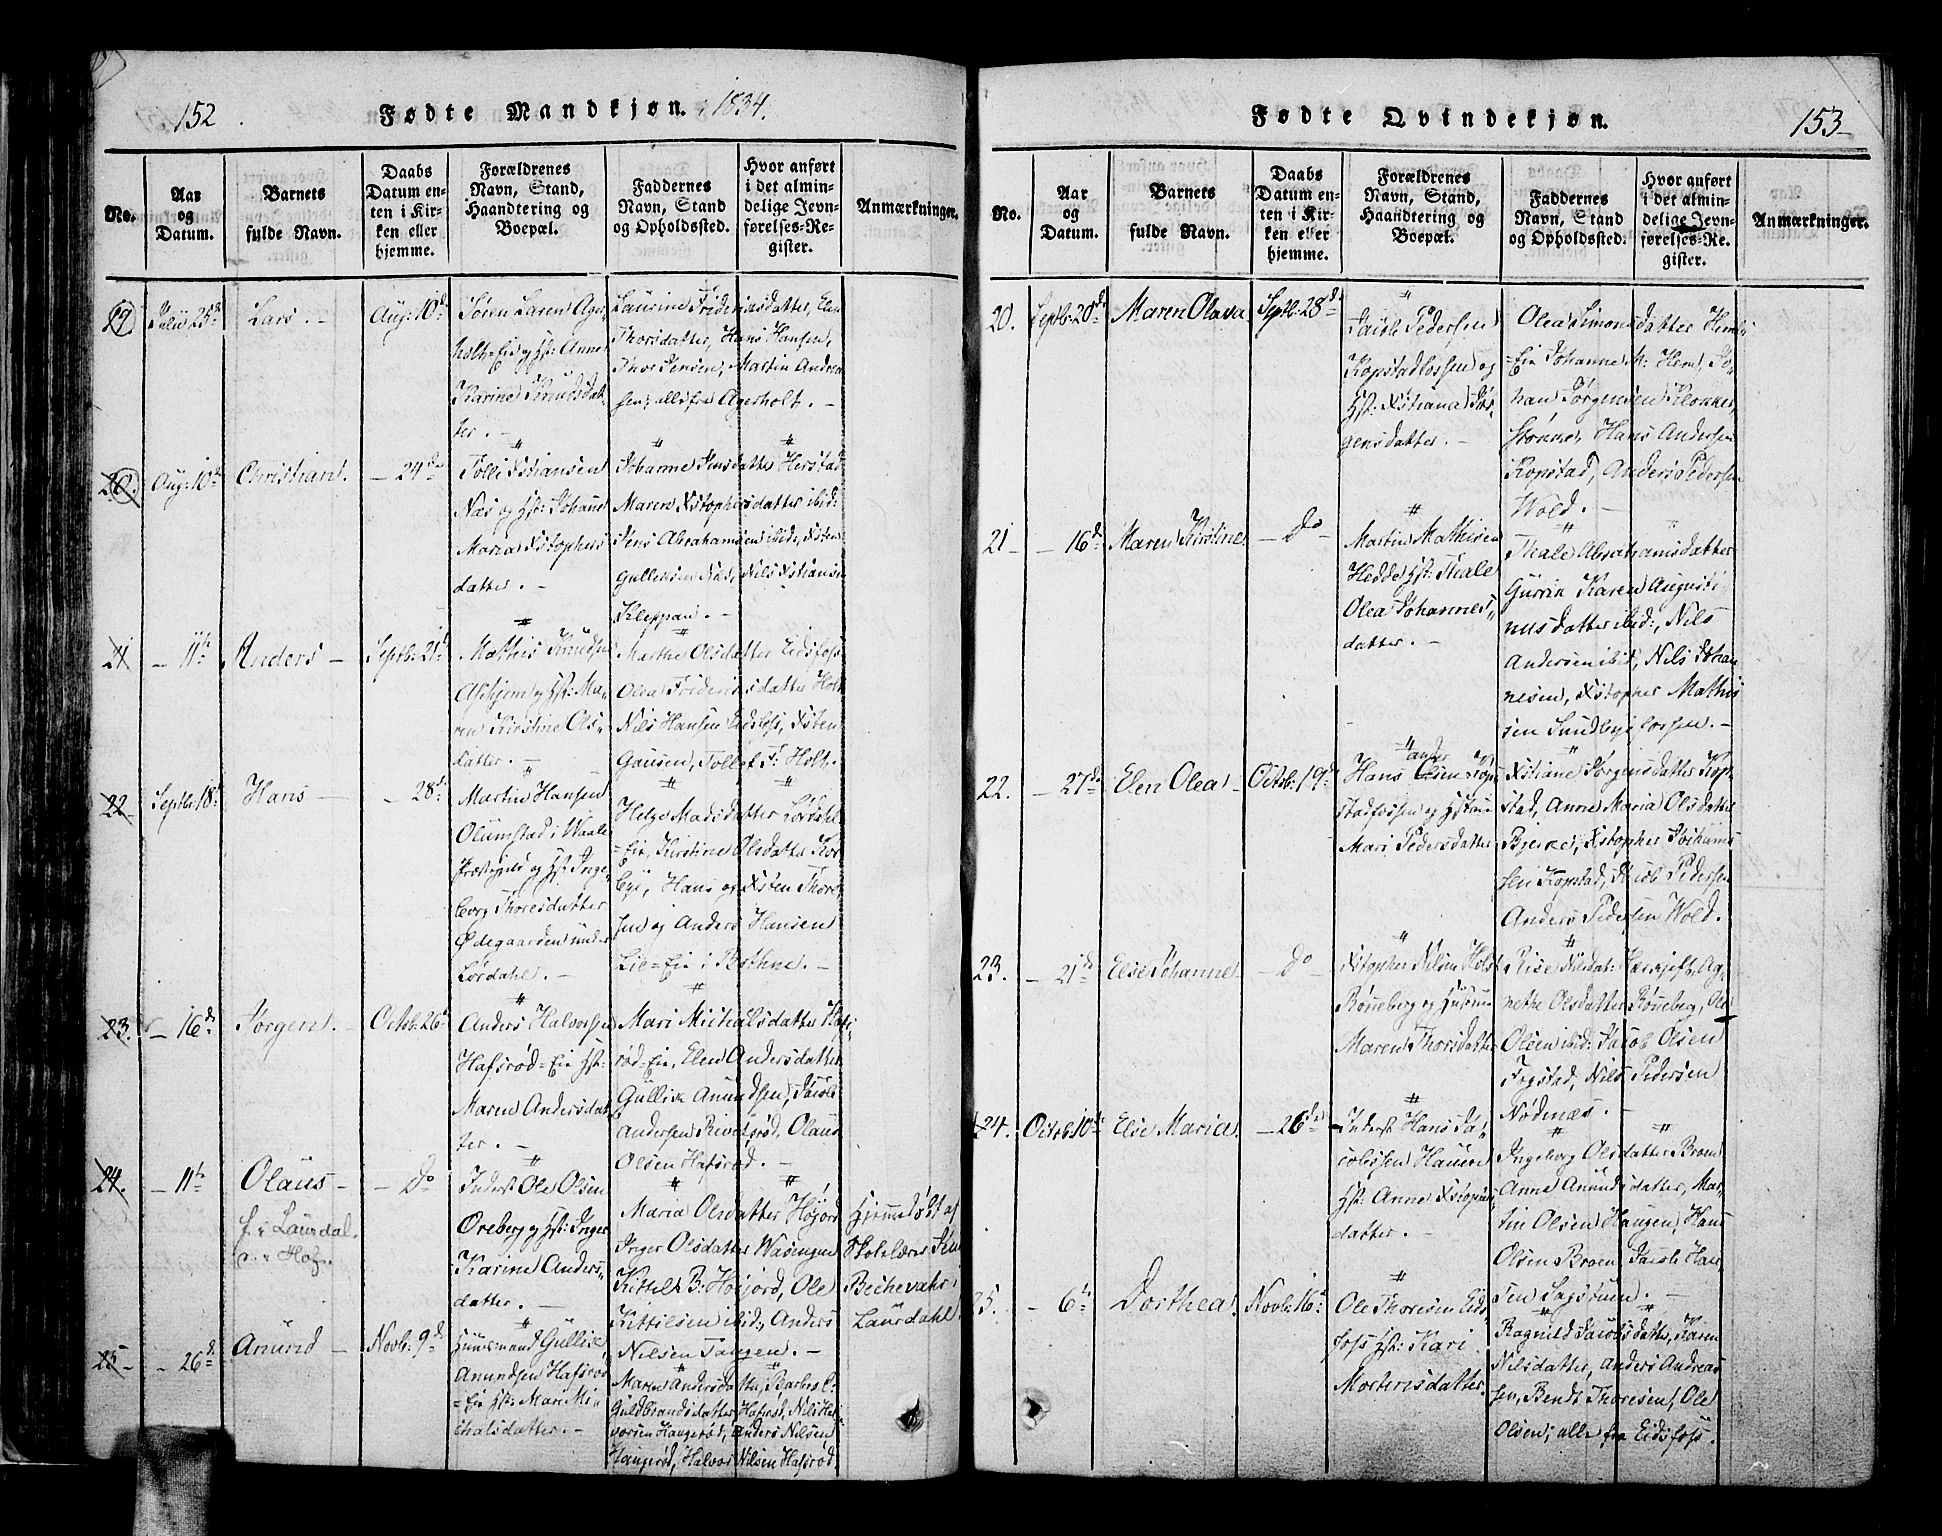 152
Fødte Mandkjøn. 1834.
No.
Aar
og
Datum.
Barnets
fulde Navn.
Daabs
Datum en-
ten i Kir-
ken eller
hjemme.
Forældrenes
Navn, Stand,
Haandtering og
Boepæl.
Faddernes
Navn, Stand
og Opholdssted.
Hvor anført
i det almin-
delige Jevn-
førelses-Re-
gister.
Anmærkninger.
19
Julii 25de
Lars. -
Aug: 10de
Søren Larsen Ager
holt-Eie og Hst: Anne
Karine Knudsdat-
ter. -
Laurine Frideriksdatter, Elen
Thorsdatter, Hans Hansen,
Thor Jensen, Martin Andrea
sen; alle fra Agerholt. -
20.
Aug: 10de
Christian.
- 24de
Tolli Xstiansen
Næs og Hst: Johanne
Maria Xstophers
datter. -
Johanne Jensdatter Herstad
Maren Xstophersdatter ibid:
Jens Abrahamsen ibid:, Xsten
Gulliksen Næs, Nils Xstiansen
Kleppan. -
21
- 11te
Anders -
Septb: 21de
Mathis Knudsen
Askjem og Hst: Ma-
ren Kirstine Ols-
datter. -
Marthe Olsdatter Eidsfoss
Olea Frideriksdatter Holt
Nils Hansen Eidsfoss, Xsten
Gausen, Tollef F: Holt. -
22
Septb: 18de
Hans -
- 28de
Martin Hansen
Olumstad i Waale
Præstegjeld og Hst: Inge-
borg Thoresdatter
Ødegaarden under
Lørdahl. -
Helge Madsdatter Lørdahl
-Eie, Kirstine Olsdatter Kor
bye, Hans og Xsten Thors
sen og Anders Hansen
Lie-Eie i Bothne. -
23.
- 16de
Jørgen. -
Octob: 26de
Anders Halvorsen
Hafsrød-Eie Hst:
Maren Andersdat
ter. -
Mari Michalsdatter Hafs
rød-Eie, Elen Andersdatter
Gullik Anundsen, Jacob
Andersen Rivelsrød, Olaus
Olsen Hafsrød. -
24.
- 11te
Olaus -
f. i Laurdal.
i Hof.
- Do
Inderst Ole Olsen
Øreberg og Hst: Inger
Karine Anders-
datter. -
Maria Olsdatter Højord
Inger Olsdatter Waasengen
Kittil B: Højord, Ole
Kittilsen ibid:, Anders
Nilsen Tangen. -
Hjemmedøbt af
Skolelærer
Bechevahr i
Laurdahl.
25 -
- 26de
Anund -
Novb: 9de
Huusmand Gullik
Anundsen Hafsrød
-Eie Hst: Mari Mi-
chalsdatter. -
Maren Andersdatter, Barbro
Guldbrandsdatter Hafsrød, Nils Hal
vorsen Haugerød, Anders Nilsen
Haugerød, Halvor Nilsen Hafsrød
Fødte Qvindekjøn.
153
No.
Aar
og
Datum.
Barnets
fulde Navn.
Daabs
Datum en-
ten i Kir-
ken eller
hjemme.
Forældrenes
Navn, Stand,
Haandtering og
Boepæl.
Faddernes
Navn, Stand
og Opholdssted.
Hvor anført
i det almin-
delige Jevn-
førelses-Re-
gister.
Anmærkninger.
20.
Septb: 20de
Maren Olava
Septb: 28de
Jacob Pedersen
Kopstadfossen og
Hst: Xstiana Jør-
gensdatter. -
Olea Simonsdatter Hems
-Eie Johanne M: Hem, Jo-
han Jørgensen Klokker
Hans Andersen
Kopstad, Anders Pedersen
Wold. -
21 -
- 16de
Maren Kirstine.
- Do -
Martin Mathisen
Hedde Hst: Thale
Olea Johannes-
datter. -
Thale Abrahamsdatter
Karen Augusti
nusdatter ibid:, Nils
Andersen ibid, Nils Johan
nesen, Xstopher Mathis
sen Sundbye -
22.
- 27de
Elen Olea -
Octob: 19de
Hans Andersen Kop
stadfossen og Hustrue
Mari Pedersdatter
Xstiane Jørgensdatter Kop
stad, Anne Maria Olsdatter
Bjerke, Xstopher Johanne
sen Kopstad, Jacob Pedersen
Anders Pedersen Wold.
23.
- 21de
Else Johanne.
- Do -
Xstopher Nilsen Holt
Røneberg og Hustrue
Maren Thorsdatter
Nilsdat: Ag-
nethe Olsdatter Røneberg, Ole
Olsen ibid: Jacob Olsen
Fogstad, Nils Pedersen
Nødnæs. -
24.
Octob: 10de
Else Maria.
- 26de
Inderst Hans Ja-
cobsen Hauen
Hst: Anne Xstophers
datter. -
Ingeborg Olsdatter Broen
Anne Anundsdatter, Mar-
tin Olsen Haugen, Hans
Olsen Broen Jacob Han
sen Sagstuen. -
25.
- 6te
Dorthea.
Novb: 16de
Ole Thoresen Eids
foss Hst: Kari
Mortensdatter.
Ragnild Jacobsdatter, Karen
Nilsdatter, Anders Andreas
sen, Bendt Thoresen, Ole
Olsen; alle fra Eidsfoss.